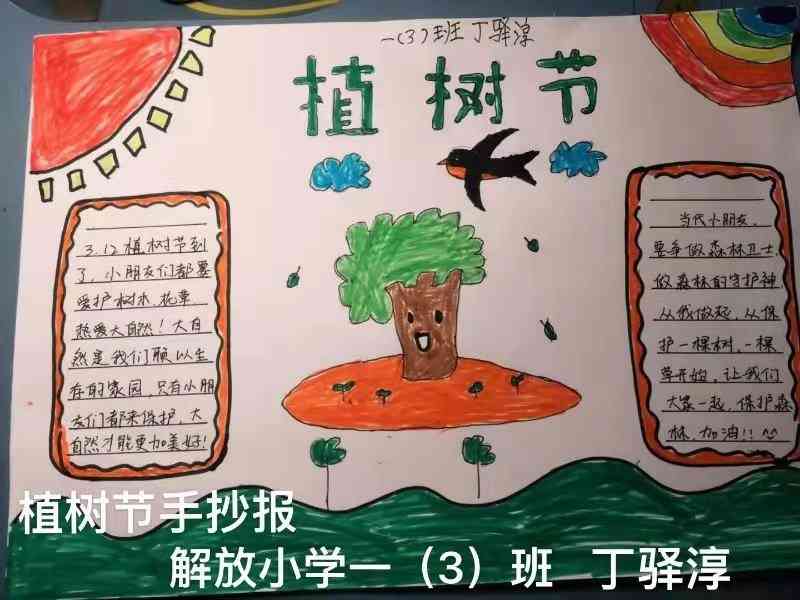 一(3)班 丁驿淳
植树节
3.12植树节到
了，小朋友们都要
爱护树木、花草
热爱大自然！大自
然是我们赖以生
存的家园，只有小朋
友们都来保护，大
自然才能更加美好！
当代小朋友，
要争做森林卫士
做森林的守护神
从我做起，从保
护一棵树，一棵
草开始，让我们
大家一起，保护森
林，加油！！^^
植树节手抄报
解放小学一（3）班 丁驿淳